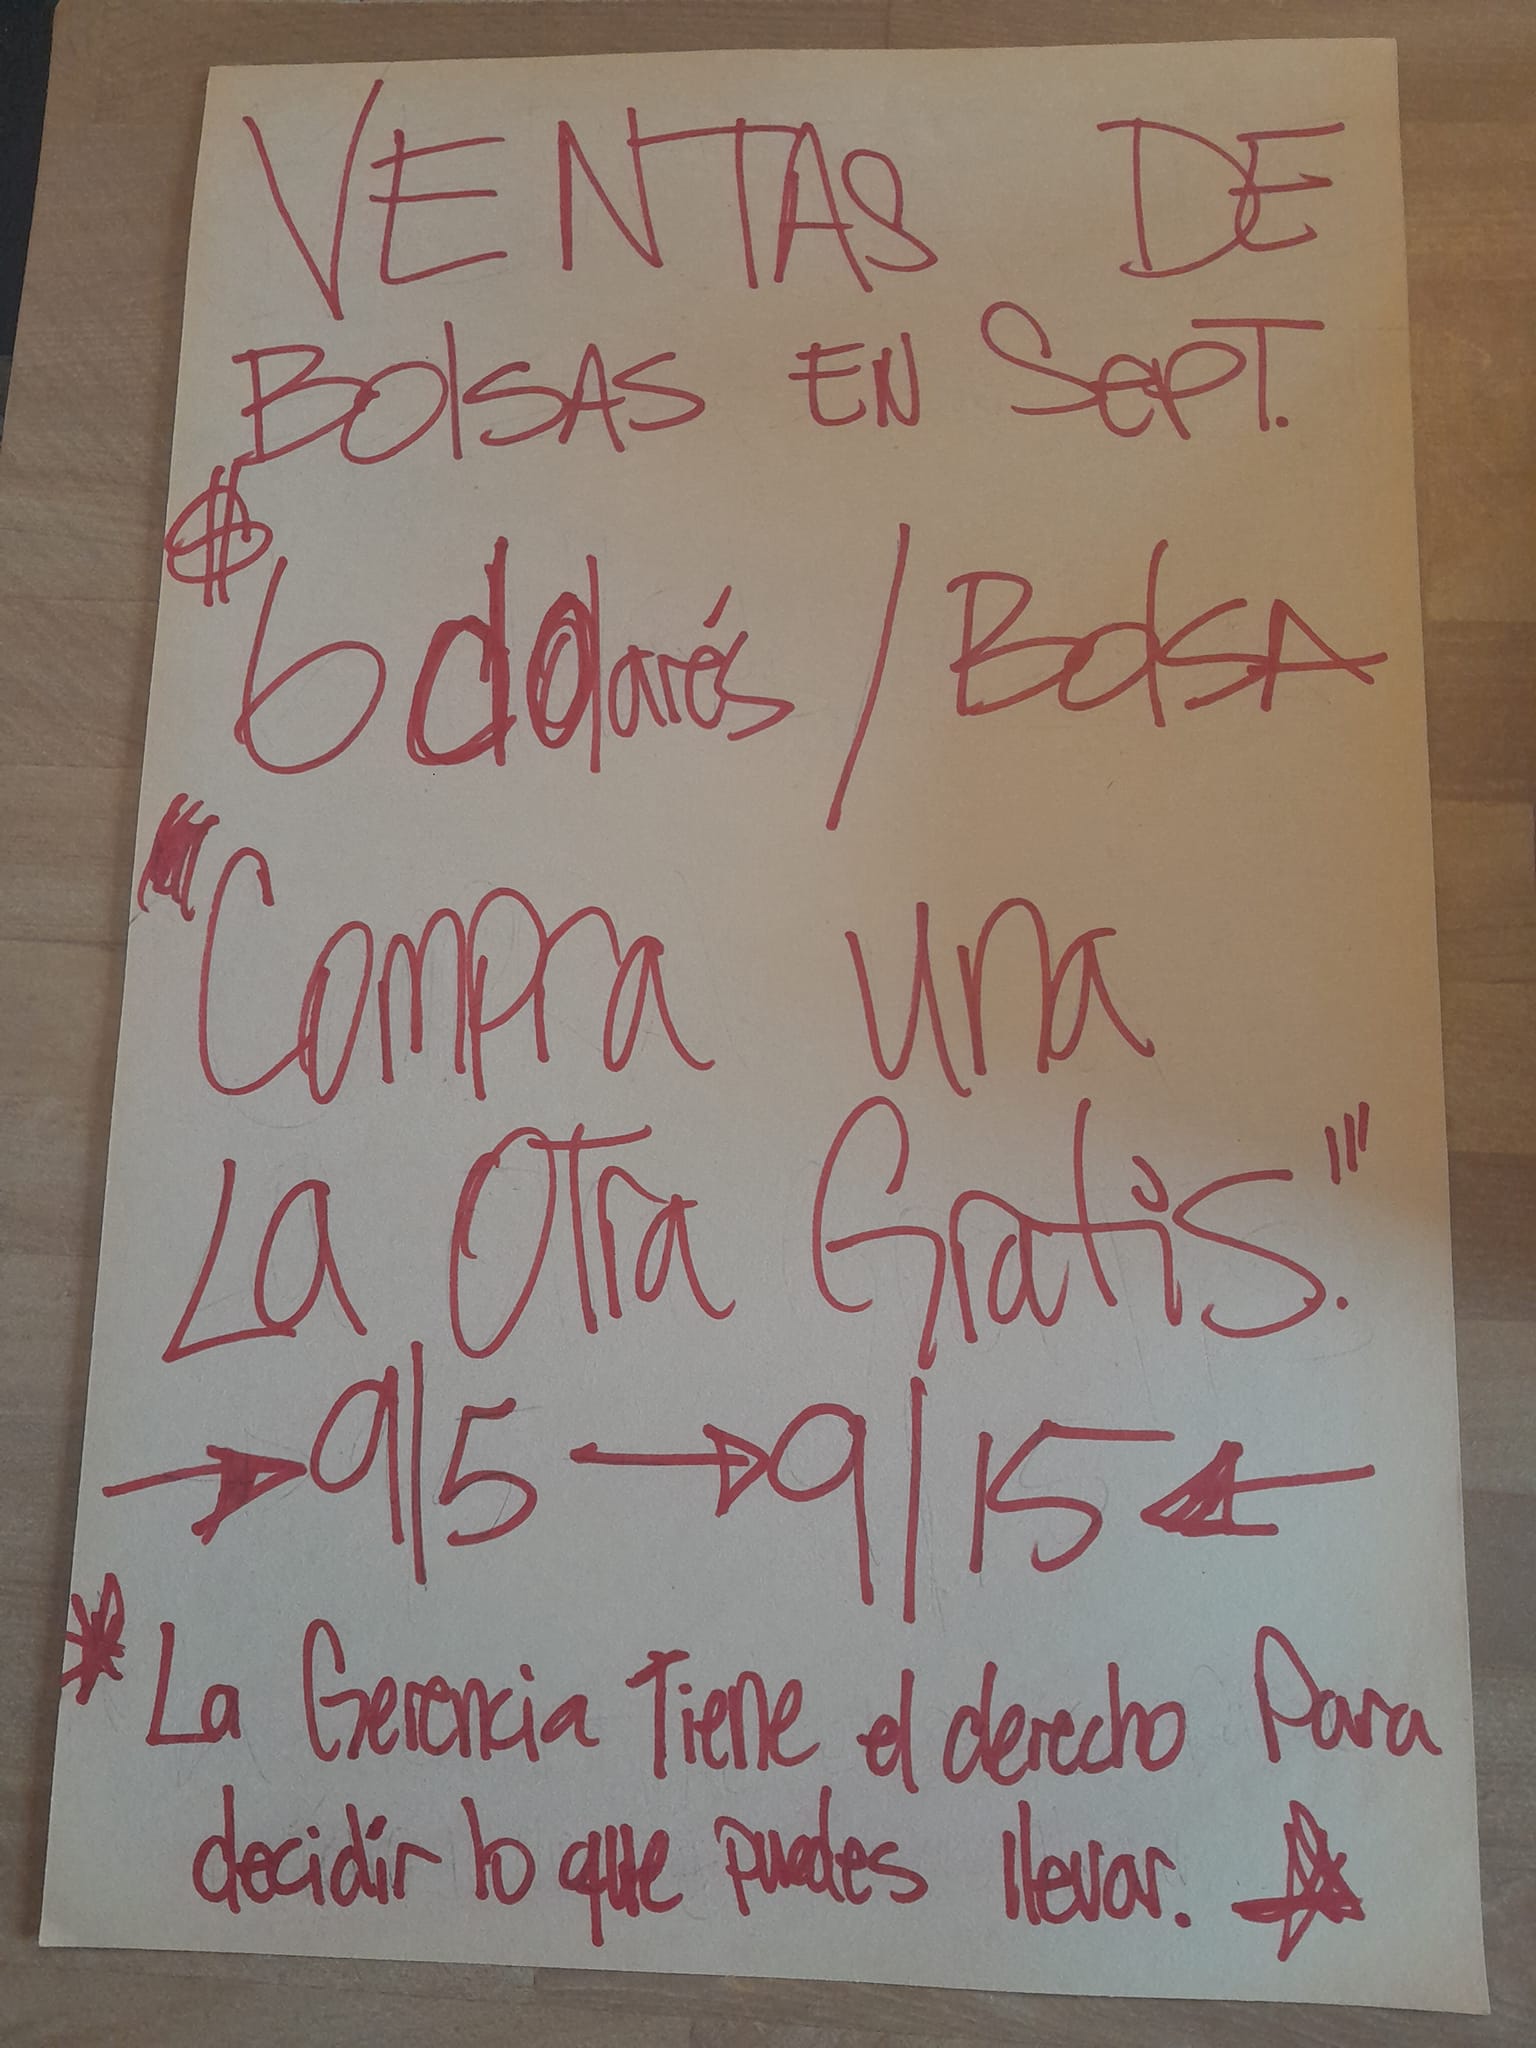 VENTAS DE
BOlSAS EN SEPT.
$6 dolarés / BolSA
"Compra una
La Otra Gratis."
→ 9/5 → 9/15 ←
* La Gerencia Tiene el derecho Para
decidir lo que puedes llevar. ☆